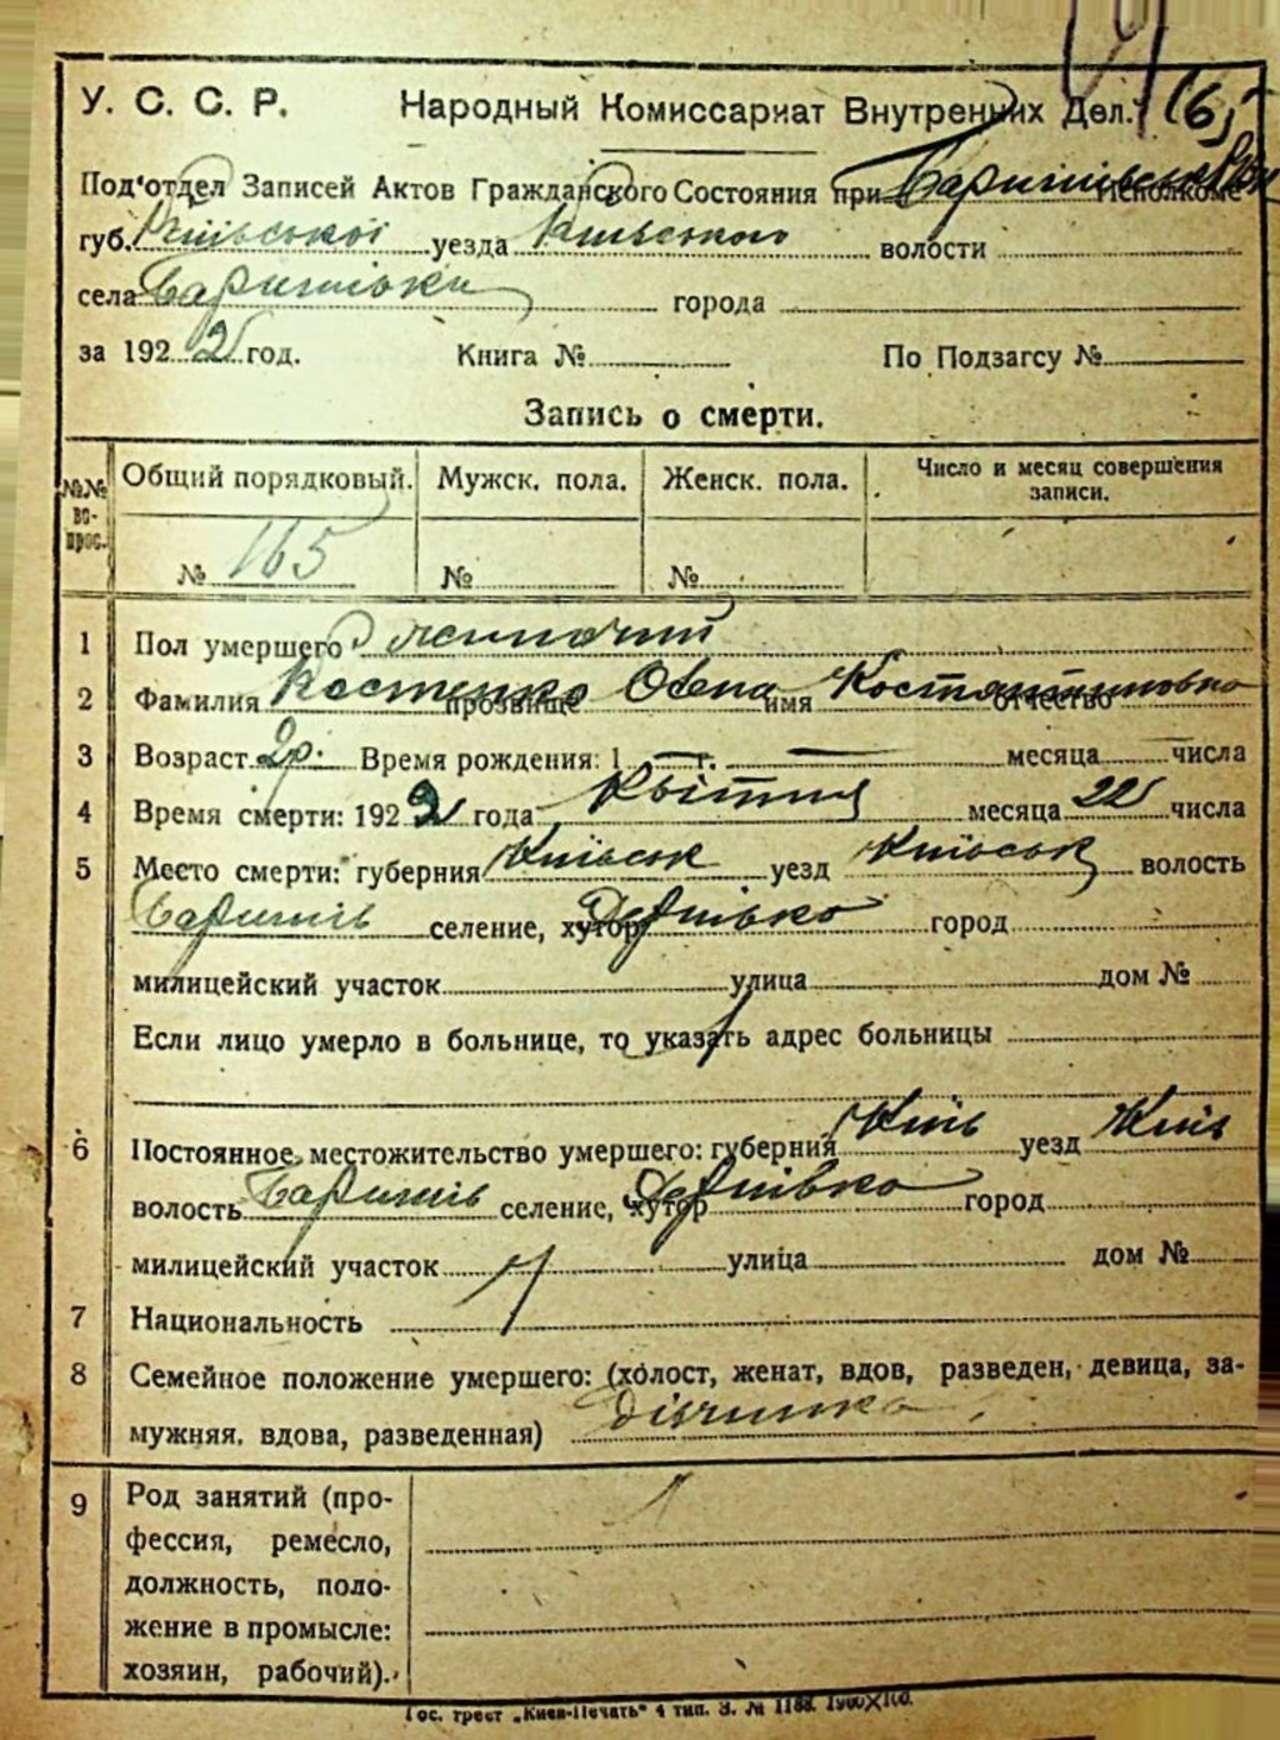 У. С. С. Р. Народный Комиссариат Внутренних Дел. 165
Под'отдел Записей Актов Гражданского Состояния при Баришівськ Исполкоме
губ. Київської уезда Київського волости
села Баришівки города
за 1922 год. Книга № По Подзагсу №
Запись о смерти.
№№ во- прос. Общий порядковый. Мужск. пола. Женск. пола. Число и месяц совершения записи.
№ 165 № №
1 Пол умершего жиночий
2 Фамилия Костенко прозвище имя Костянтиновна отчество
3 Возраст 2 р. Время рождения: 1 — г. — месяца числа
4 Время смерти: 1922 года Квітня месяца 22 числа
5 Место смерти: губерния Київськ уезд Київськ волость
Баришів селение, хутор Дернівка город
милицейский участок улица дом №
Если лицо умерло в больнице, то указать адрес больницы
6 Постоянное местожительство умершего: губерния Київ уезд Київ
волость Баришів селение, хутор Дернівка город
милицейский участок улица дом №
7 Национальность
8 Семейное положение умершего: (холост, женат, вдов, разведен, девица, за-
мужняя, вдова, разведенная) дівчинка
9 Род занятий (про-
фессия, ремесло,
должность, поло-
жение в промысле:
хозяин, рабочий).
Гос. трест „Киев-Печать" 4 тип. З. № 1188. 1900×100.